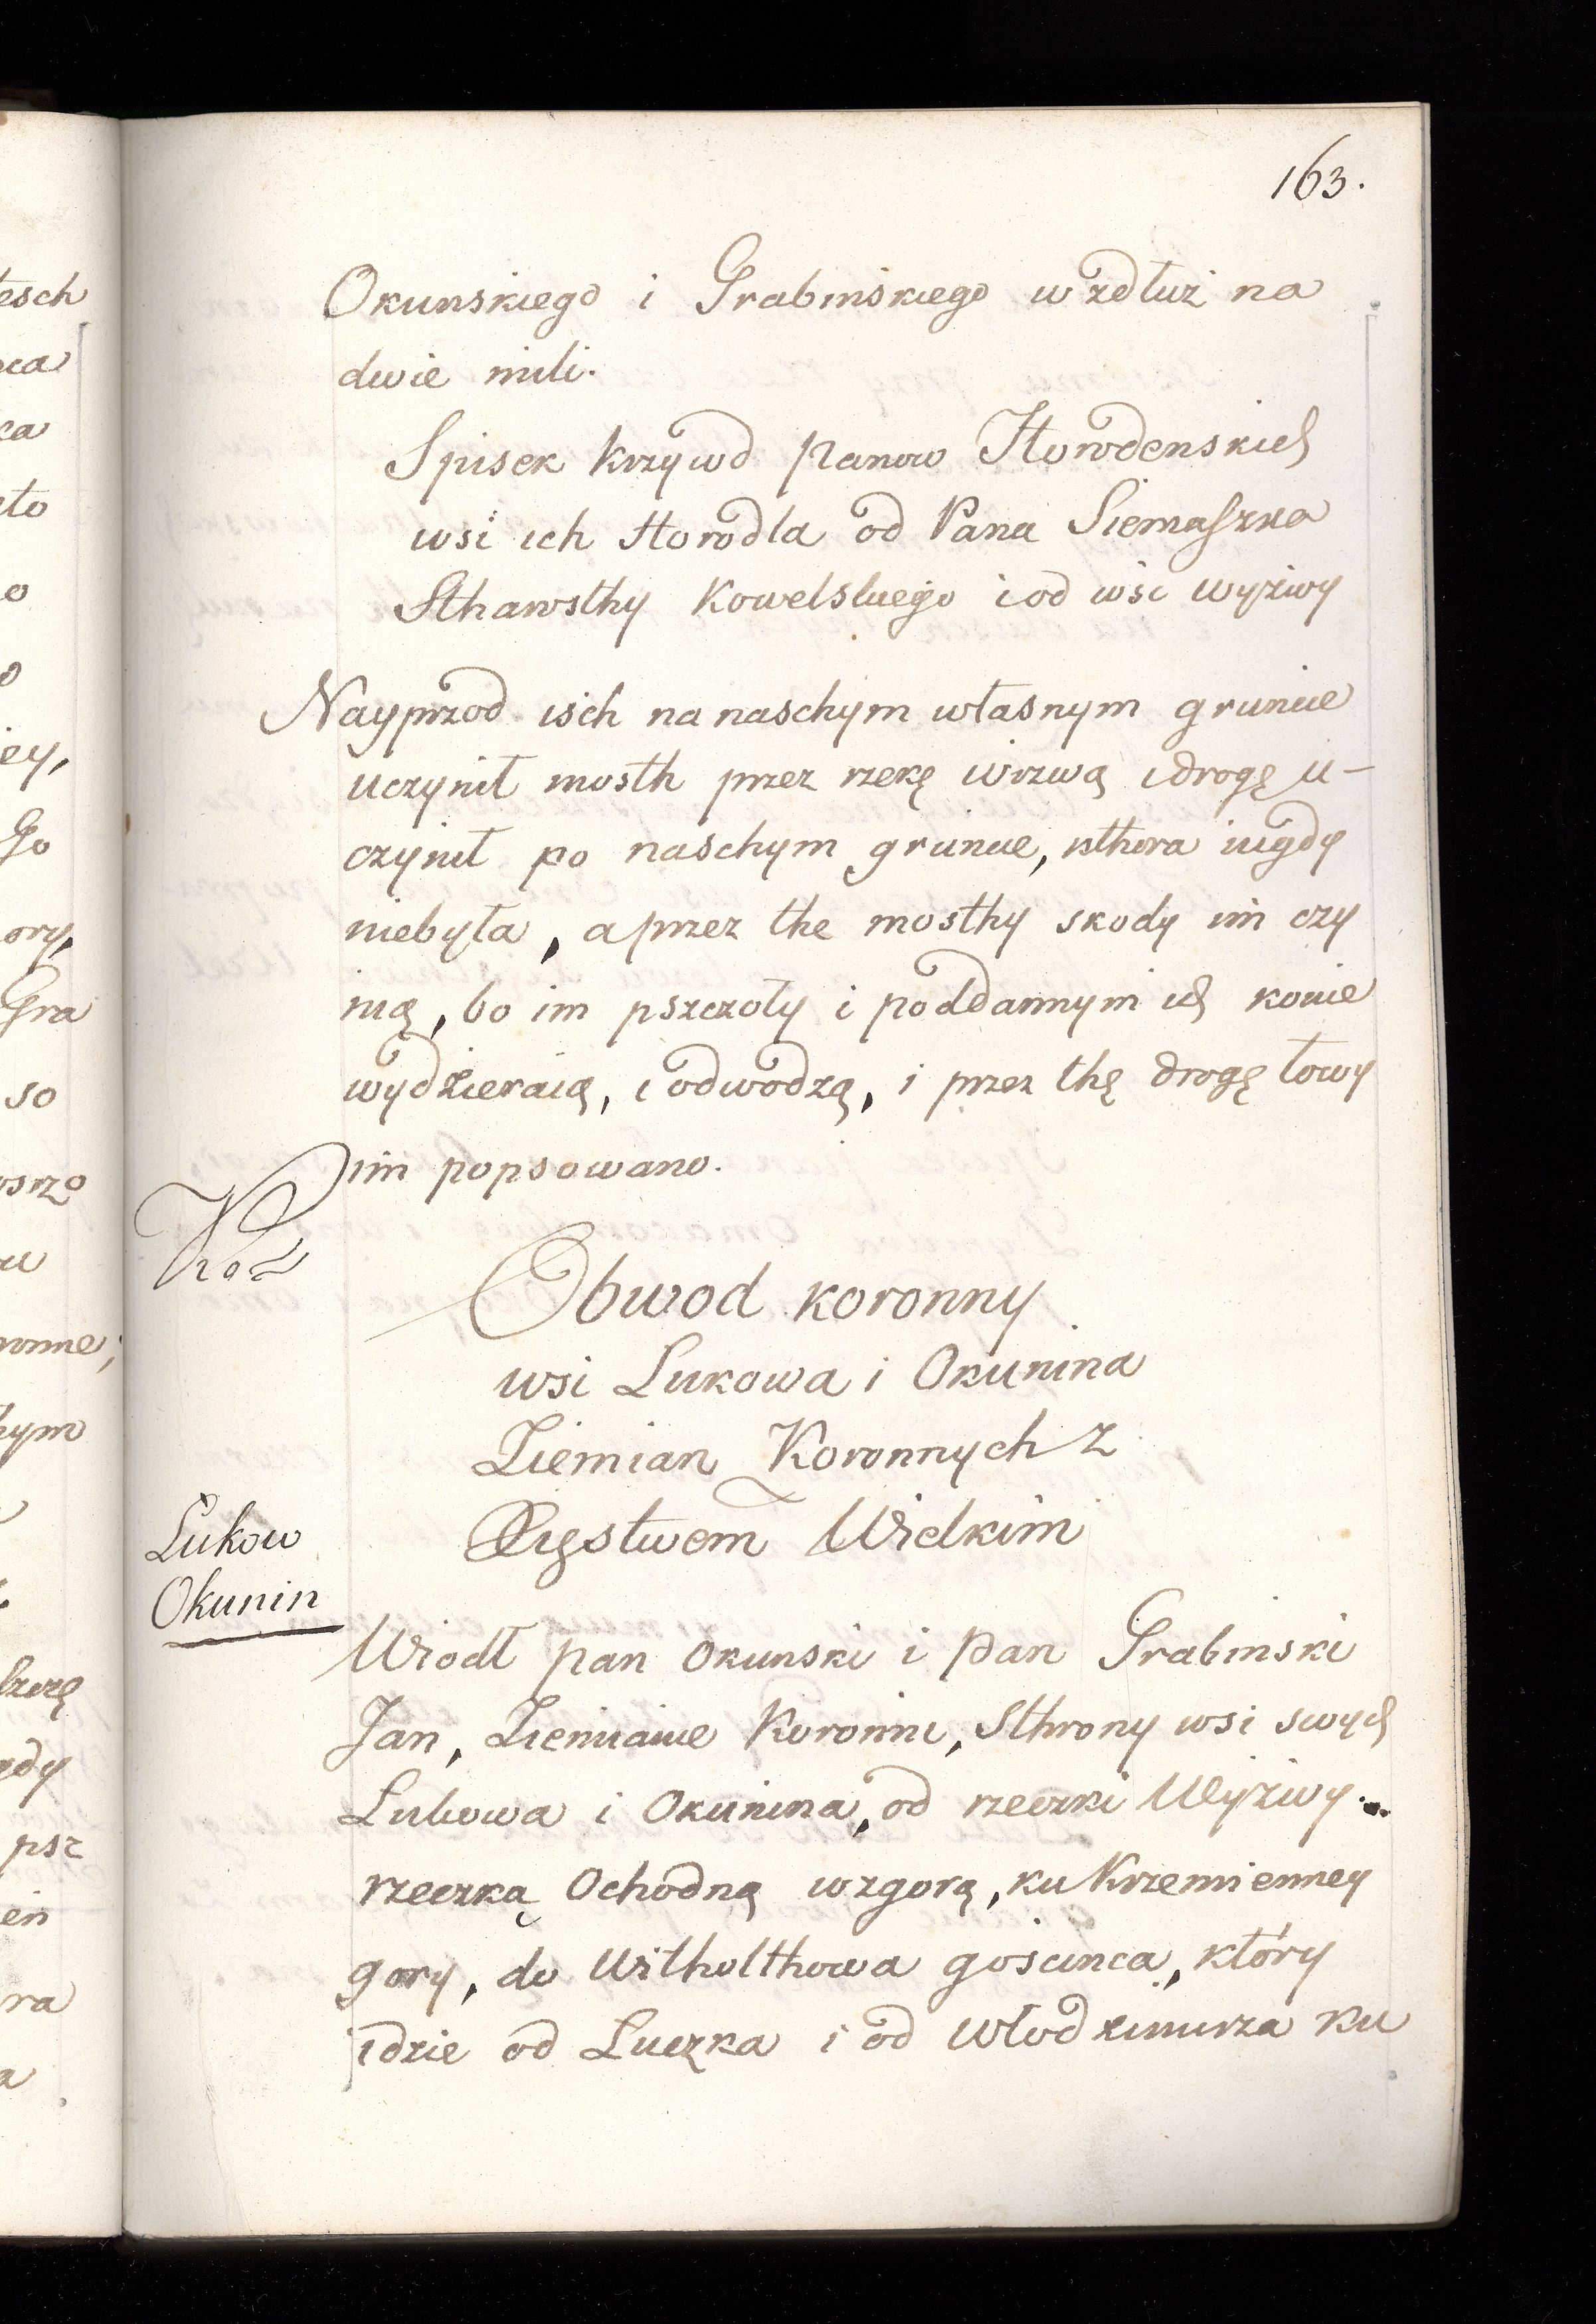 163.
Okunskiego i Grabinskiego wzdłuż na
dwie mili.
Spisek krzywd Panow Horodenskich
wsi ich Horodla od Pana Siemaszka
Sthawsthy Kowelskiego i od wsi Wyżwy
Nayprzod isch na naschym własnym gruncie
uczynił mosth przez rzekę wizwą i drogę u-
czynił po naschym gruncie, kthora nigdy
niebyła, a przez the mosthy skody im czy
nią, bo im pszczoły i poddannym ich konie
wydzieraią, i odwodzą, i przez thę drogę łowy
im popsowano.
Obwod koronny
wsi Lukowa i Okunina
Ziemian Koronnych z
Xięstwem Wielkim
Lukow
Okunin
Wiodł pan Okunski i Pan Grabinski
Jan, Ziemianie Koronni, Sthrony wsi swych
Lukowa i Okunina, od rzeczki Wyżwy
rzeczką Ochodną wzgorą, ku Krzemienney
gory, do Witholthowa goscinca, który
idzie od Luczka i od Włodzimirza ku